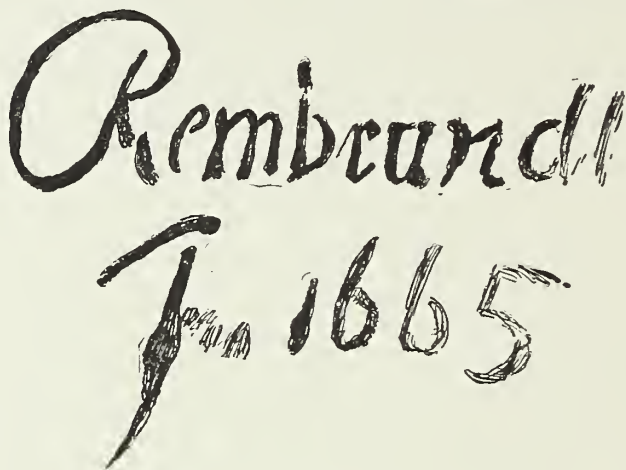 Rembrandt
f 1665